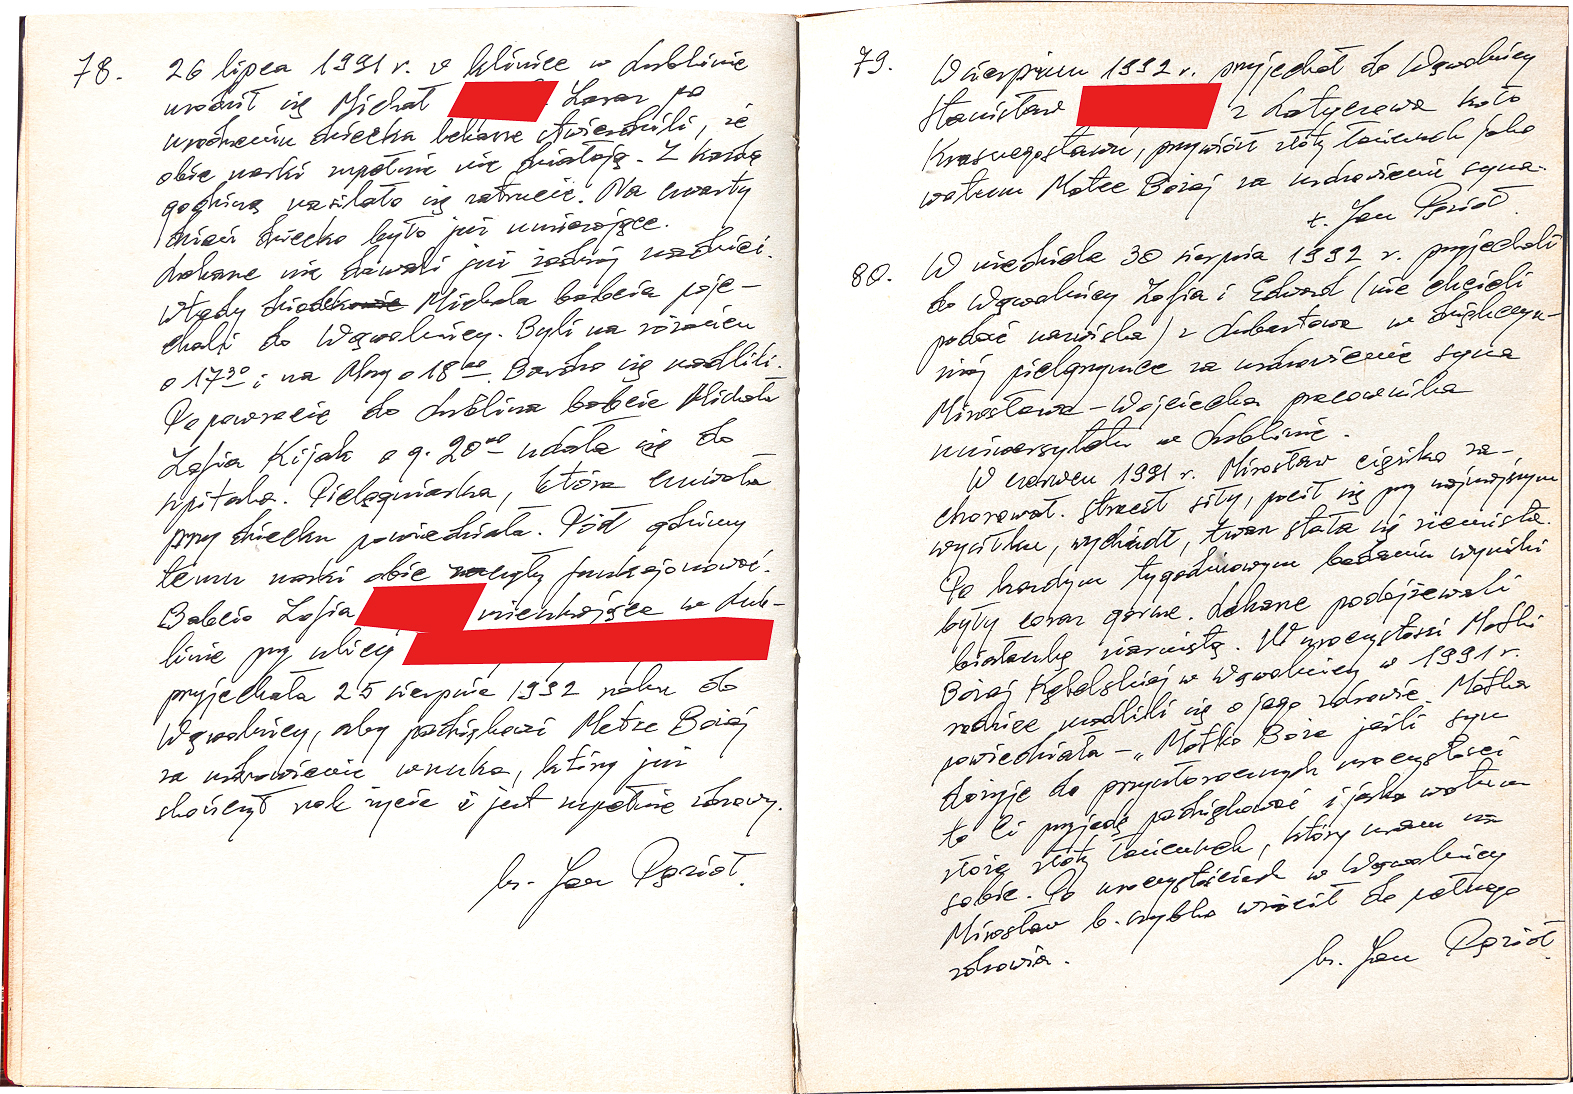 78. 26 lipca 1991 r. w klinice w Lublinie
urodził się Michał Zaraz po
urodzeniu dziecka lekarze stwierdzili, że
obie nerki zupełnie nie działają. Z każdą
godziną nasilało się zatrucie. Na czwarty
dzień dziecko było już umierające.
Lekarze nie dawali już żadnej nadziei.
Wtedy dziadkowie Michała babcia poje-
chali do Wąwolnicy. Byli na różańcu
o 17³⁰ i na Mszy o 18⁰⁰. Bardzo się modlili.
Po powrocie do Lublina babcia Michała
Zofia Kijak o g. 20⁰⁰ udała się do
szpitala. Pielęgniarka, która czuwała
przy dziecku powiedziała. Pół godziny
temu nerki obie zaczęły funkcjonować.
Babcia Zofia mieszkająca w Lub-
linie przy ulicy
przyjechała 25 sierpnia 1992 roku do
Wąwolnicy, aby podziękować Matce Bożej
za uzdrowienie wnuka, który już
skończył rok życia i jest zupełnie zdrowy.
ks. Jan Pęzioł.
79. W sierpniu 1992 r. przyjechał do Wąwolnicy
Stanisław z Łatyczowa koło
Krasnegostawu, przywiózł złoty łańcuch jako
wotum Matce Bożej za uzdrowienie syna.
x. Jan Pęzioł.
80. W niedziele 30 sierpnia 1992 r. przyjechali
do Wąwolnicy Zofia i Edward (nie chcieli
podać nazwiska) z Lubartowa w dziękczyn-
nej pielgrzymce za uzdrowienie syna
Mirosława-Wojciecha pracownika
uniwersytetu w Lublinie.
W czerwcu 1991 r. Mirosław ciężko za-
chorował. Stracił siły, pocił się przy najmniejszym
wysiłku, wychudł, twarz stała się ziemista.
Po każdym tygodniowym badaniu wyniki
były coraz gorsze. Lekarze podejżewali
białaczkę ziarnistą. W uroczystości Matki
Bożej Kębelskiej w Wąwolnicy w 1991 r.
rodzice modlili się o jego zdrowie. Matka
powiedziała – „Matko Boża jeśli syn
dożyje do przyszłorocznych uroczystości
to Ci przyjadę podziękować i jako wotum
złożę złoty łańcuszek, który mam na
sobie. Po uroczystościach w Wąwolnicy
Mirosław b. szybko wrócił do pełnego
zdrowia.
ks. Jan Pęzioł.